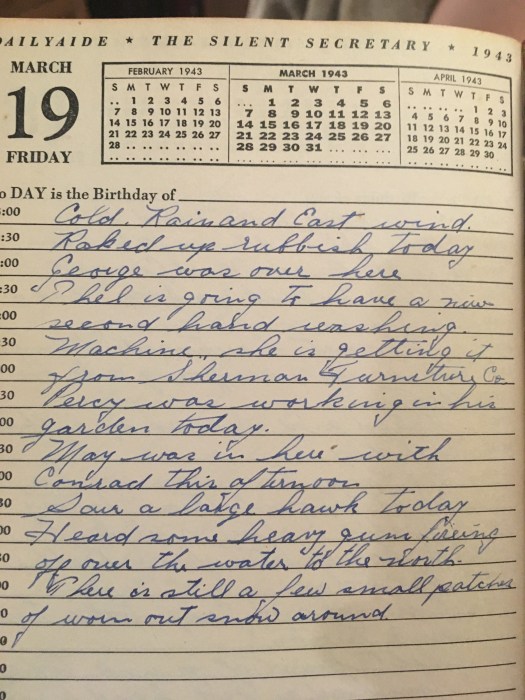 DAILYAIDE ★ THE SILENT SECRETARY ★ 1943
MARCH
19
FRIDAY
FEBRUARY 1943
S M T W T F S
.. 1 2 3 4 5 6
7 8 9 10 11 12 13
14 15 16 17 18 19 20
21 22 23 24 25 26 27
28 .. .. .. .. .. ..
MARCH 1943
S M T W T F S
... 1 2 3 4 5 6
7 8 9 10 11 12 13
14 15 16 17 18 19 20
21 22 23 24 25 26 27
28 29 30 31 ... ... ...
APRIL 1943
S M T W T F S
.. .. .. .. 1 2 3
4 5 6 7 8 9 10
11 12 13 14 15 16 17
18 19 20 21 22 23 24
25 26 27 28 29 30
o DAY is the Birthday of
:00 Cold, Rain and East wind.
:30 Raked up rubbish today
:00 George was over here
:30 Thel is going to have a new
:00 second hand washing
30 Machine, she is getting it
00 from Sherman Furneture Co.
30 Percy was working in his
00 garden today.
30 May was in here with
00 Conrad this afternoon
30 Saw a large hawk today
00 Heard some heavy gum fireing
30 off over the water to the north.
0 There is still a few small patches
0 of worn out snow around.
0
0
0